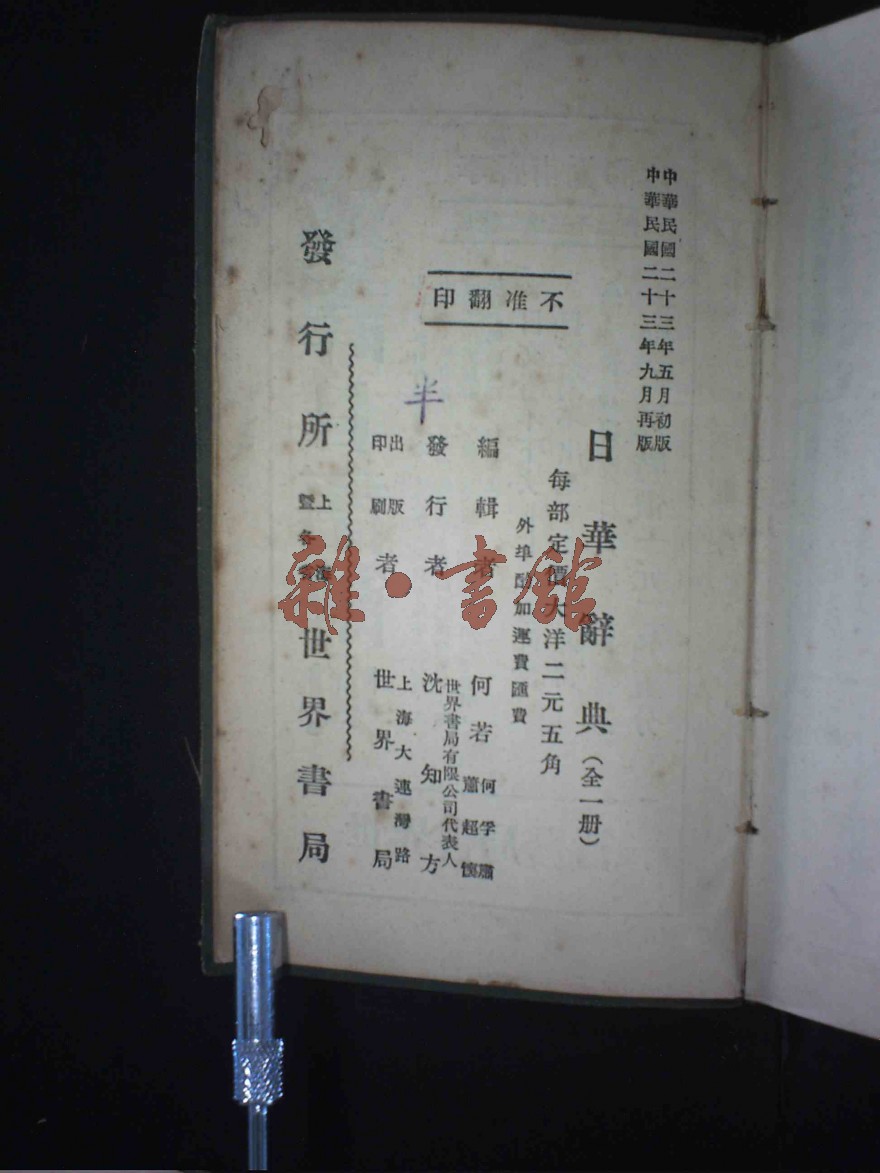 中華民國二十三年五月初版
中華民國二十三年九月再版
日華辭典（全一册）
每部定價大洋二元五角
外埠酌加運費匯費
不准翻印
編輯者
何若
何孚
蕭超
發行者
世界書局有限公司代表人
沈知方
半
出版
印刷
者
上海大連灣路
世界書局
發行所
上海
暨各
世界書局
雜·書館